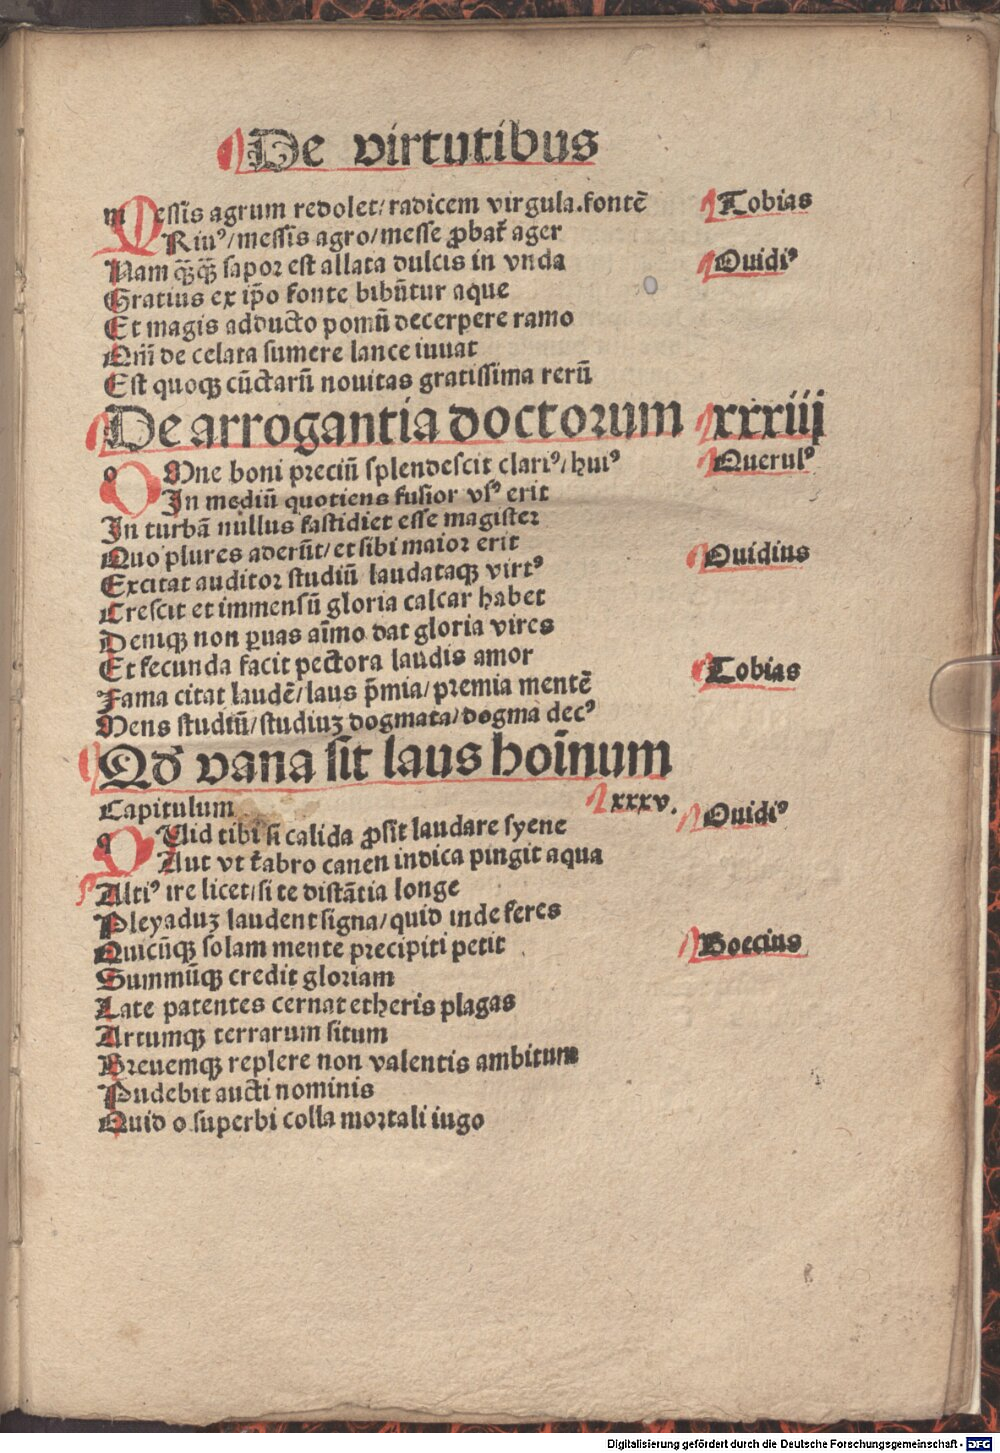 De virtutibus
Messis agrum redolet/ radicem virgula.fontē Tobias
Riuꝰ/messis agro/messe ꝓbat᷑ ager
Nam qͣ̃qͣ̃ sapor est allata dulcis in vnda Ouidiꝰ
Gratius ex ip̄o fonte bibūtur aque
Et magis adducto pomū decerpere ramo
Qm̄ de celata sumere lance iuuat
Est quoqꝫ cūctarū nouitas gratissima rerū
De arrogantia doctorum xxxiiij
OMne boni preciū splendescit clariꝰ/huiꝰ Querulꝰ
In mediū quotiens fusior vsꝰ erit
In turbā nullus fastidiet esse magister
Quo plures aderūt/et sibi maior erit
Excitat auditor studiū laudataqꝫ virtꝰ Ouidius
Crescit et immensū gloria calcar habet
Deniqꝫ non ꝑuas aīmo dat gloria vires
Et fecunda facit pectora laudis amor
Fama citat laudē/laus p̄mia/premia mentē Tobias
Mens studiū/studiuꝫ dogmata/dogma decꝰ
Qđ vana sit laus hoīnum
Capitulum xxxv.
QUid tibi si calida ꝓsit laudare syene Ouidiꝰ
Aut vt t᷑abro canen indica pingit aqua
Altiꝰ ire licet/si te distātia longe
Pleyaduꝫ laudent signa/quid inde feres
Quicūqꝫ solam mente precipiti petit Boecius
Summūqꝫ credit gloriam
Late patentes cernat etheris plagas
Artumqꝫ terrarum situm
Breuemqꝫ replere non valentis ambitum
Pudebit aucti nominis
Quid o superbi colla mortali iugo
Digitalisierung gefördert durch die Deutsche Forschungsgemeinschaft - DFG